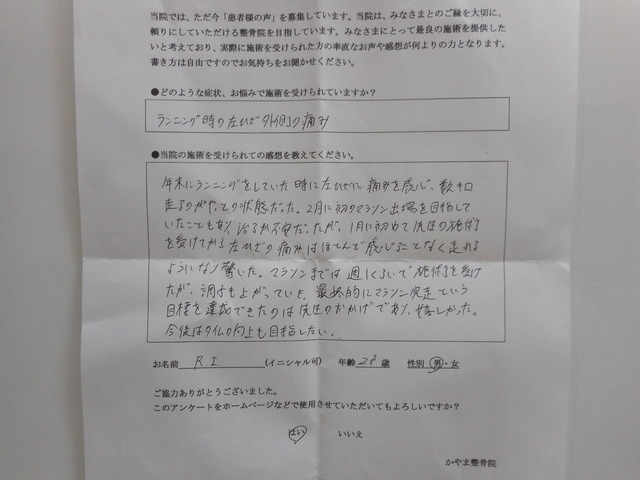 当院では、ただ今「患者様の声」を募集しています。当院は、みなさまとのご縁を大切に、
頼りにしていただける整骨院を目指しています。みなさまにとって最良の施術を提供した
いと考えており、実際に施術を受けられた方の率直なお声や感想が何よりの力となります。
書き方は自由ですのでお気持ちをお聞かせください。
●どのような症状、お悩みで施術を受けられていますか？
ランニング時の左ひざ外側の痛み
●当院の施術を受けられての感想を教えてください。
年末にランニングをしていた時に左ひざに痛みを感じ、数キロ
走るのがやっとの状態だった。2月に初のマラソン出場を目指して
いたこともあり、治るか不安だったが、1月に初めて先生の施術
を受けてから左ひざの痛みはほとんど感じることなく走れる
ようになり驚いた。マラソンまでは週1くらいで施術を受け
たが、調子も上がっていき、最終的にマラソン完走という
目標を達成できたのは先生のおかげであり、嬉しかった。
今後はタイムの向上も目指したい。
お名前 R.I (イニシャル可) 年齢 28 歳 性別 男・女
ご協力ありがとうございました。
このアンケートをホームページなどで使用させていただいてもよろしいですか？
はい いいえ
かやま整骨院